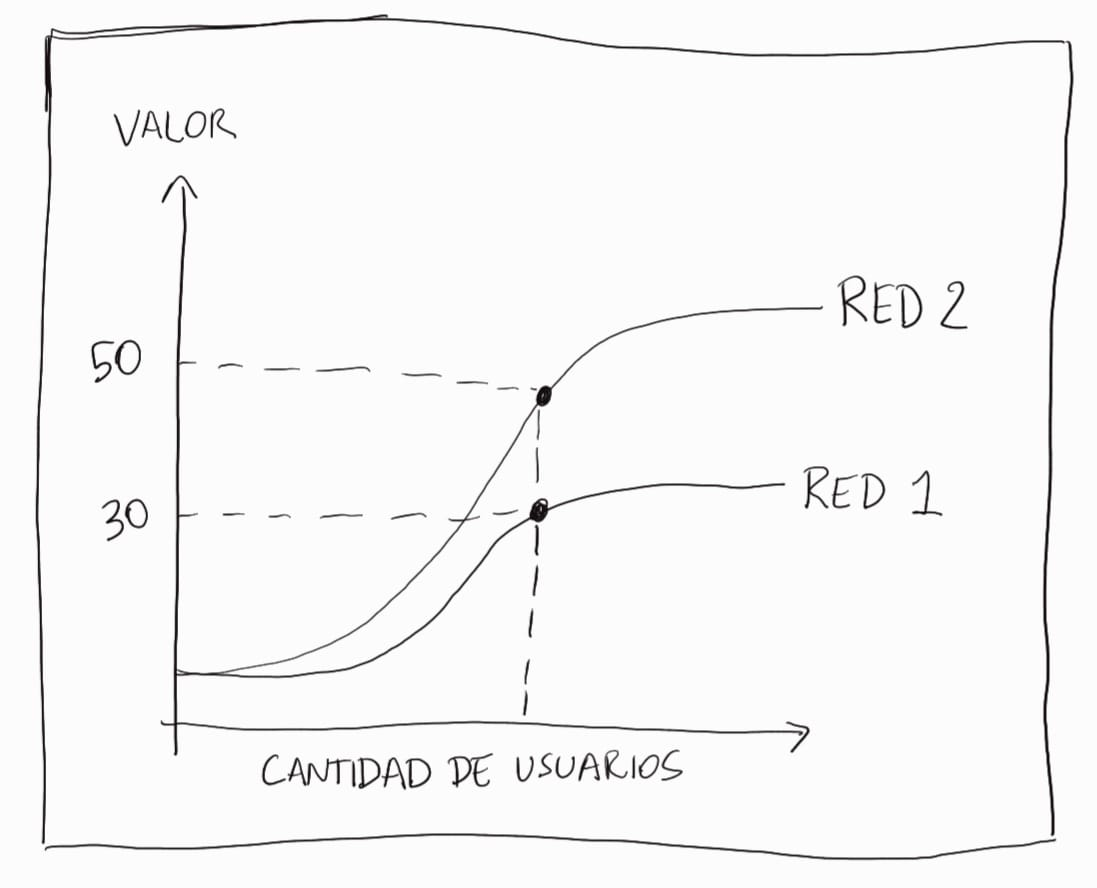 VALOR
RED 2
50
RED 1
30
CANTIDAD DE USUARIOS